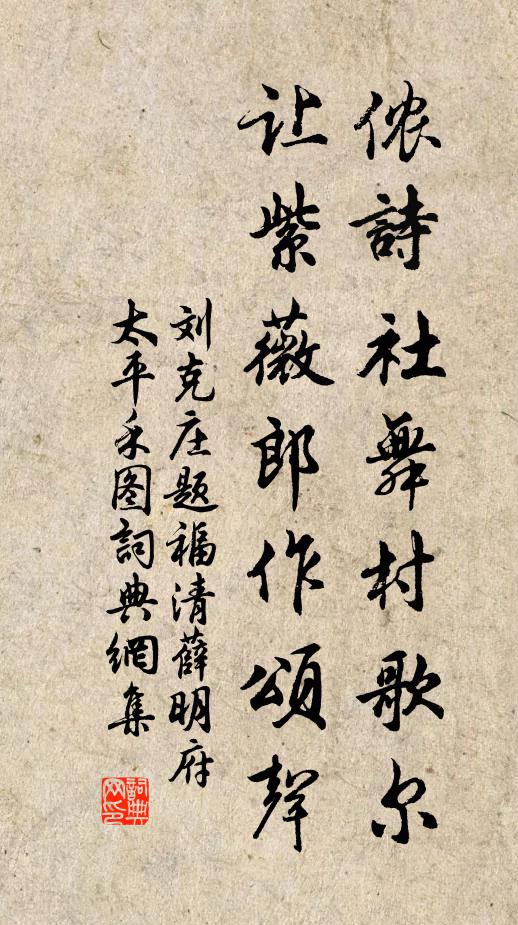 侬詩社舞村歌尔
让紫薇郎作頌聲
刘克庄题福清薛明府
太平禾图詞典網集
詞典
网印